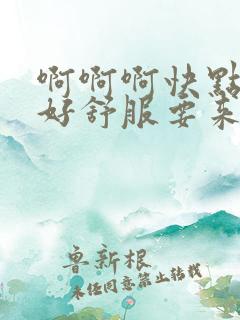 啊啊啊快點
好舒服要来
鲁新根
未任同意禁止转载